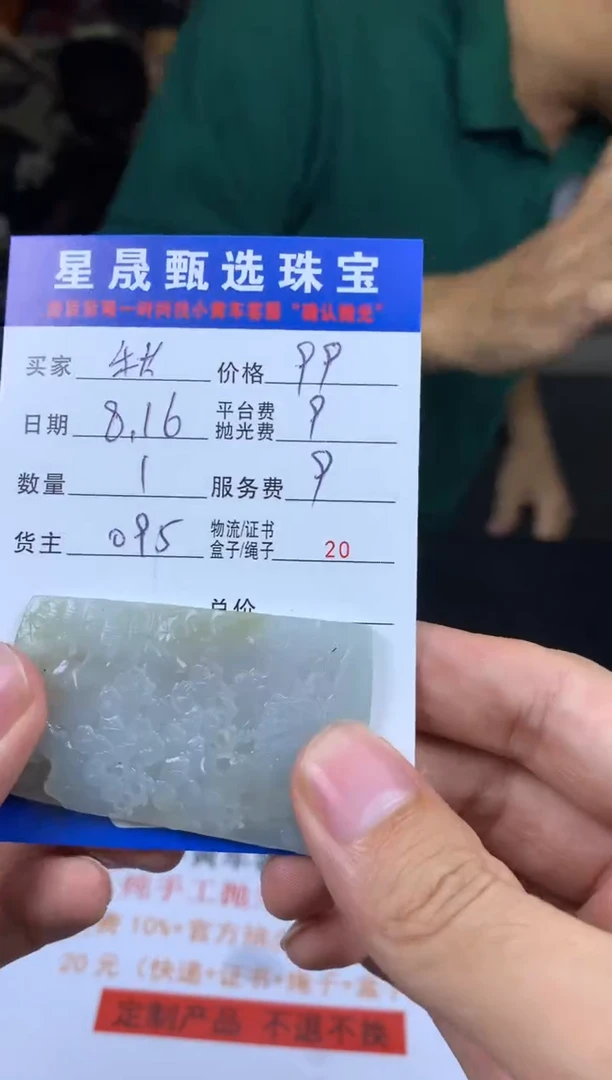 星晟甄选珠宝
买家 价格 99
日期 8.16 平台费 抛光费 9
数量 1 服务费 9
货主 095 物流/证书 盒子/绳子 20
总价
纯手工抛
费10%+官方
20元（快递+证书+绳子+盒
定制产品 不退不换